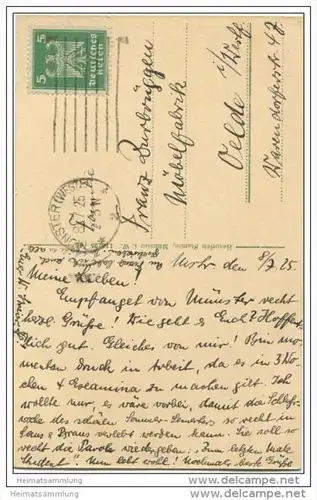 5 Deutsches Reich 5
MÜNSTER (WESTF)
Franz Burbrüggen
Möbelfabrik
Oelde i/Westf.
Warendorferstr. 47.
Mstr. den 8/7.25
Meine Lieben!
Empfanget von Münster recht
herzl. Grüße! Wie geht es Euch? Hoffent-
lich gut. Gleiches von mir! Bin mo-
mentan Druck in Arbeit, da es in 3 Wo-
chen Examina zu machen gilt. Ich
wollte nur, es wäre vorbei, damit die
des schönen Sommer-Semesters so recht in
Saus & Braus verlebt werden kann. Sie soll so
recht die Parole wiedergeben: Zum letzten Male
Student! Nun lebt wohl! Nochmals herzl. Grüße